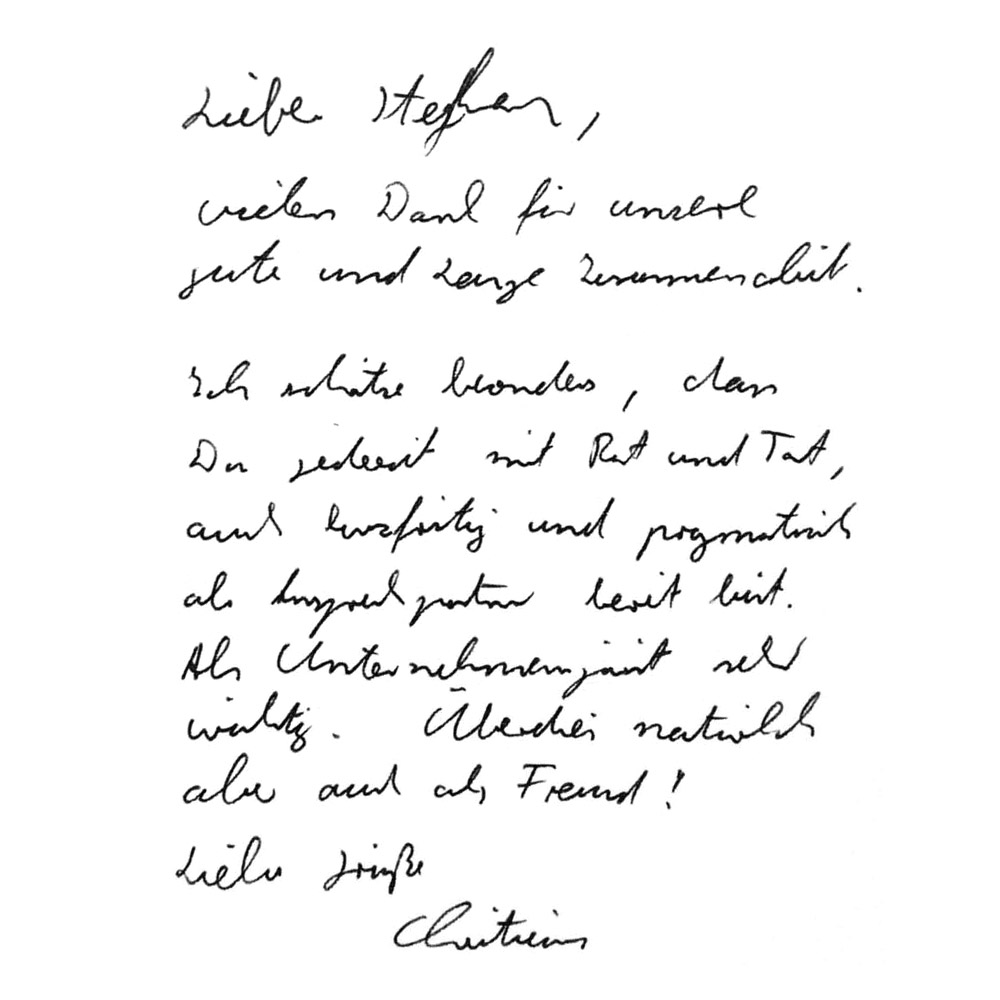 Lieber Stephan,
vielen Dank für unsere
gute und lange Zusammenarbeit.
Ich schätze besonders, dass
Du jederzeit mit Rat und Tat,
auch kurzfristig und pragmatisch
als Ansprechpartner bereit bist.
Als Unternehmen ist sehr
wichtig. Überdies natürlich
aber auch als Freund!
Liebe Grüße
Christian